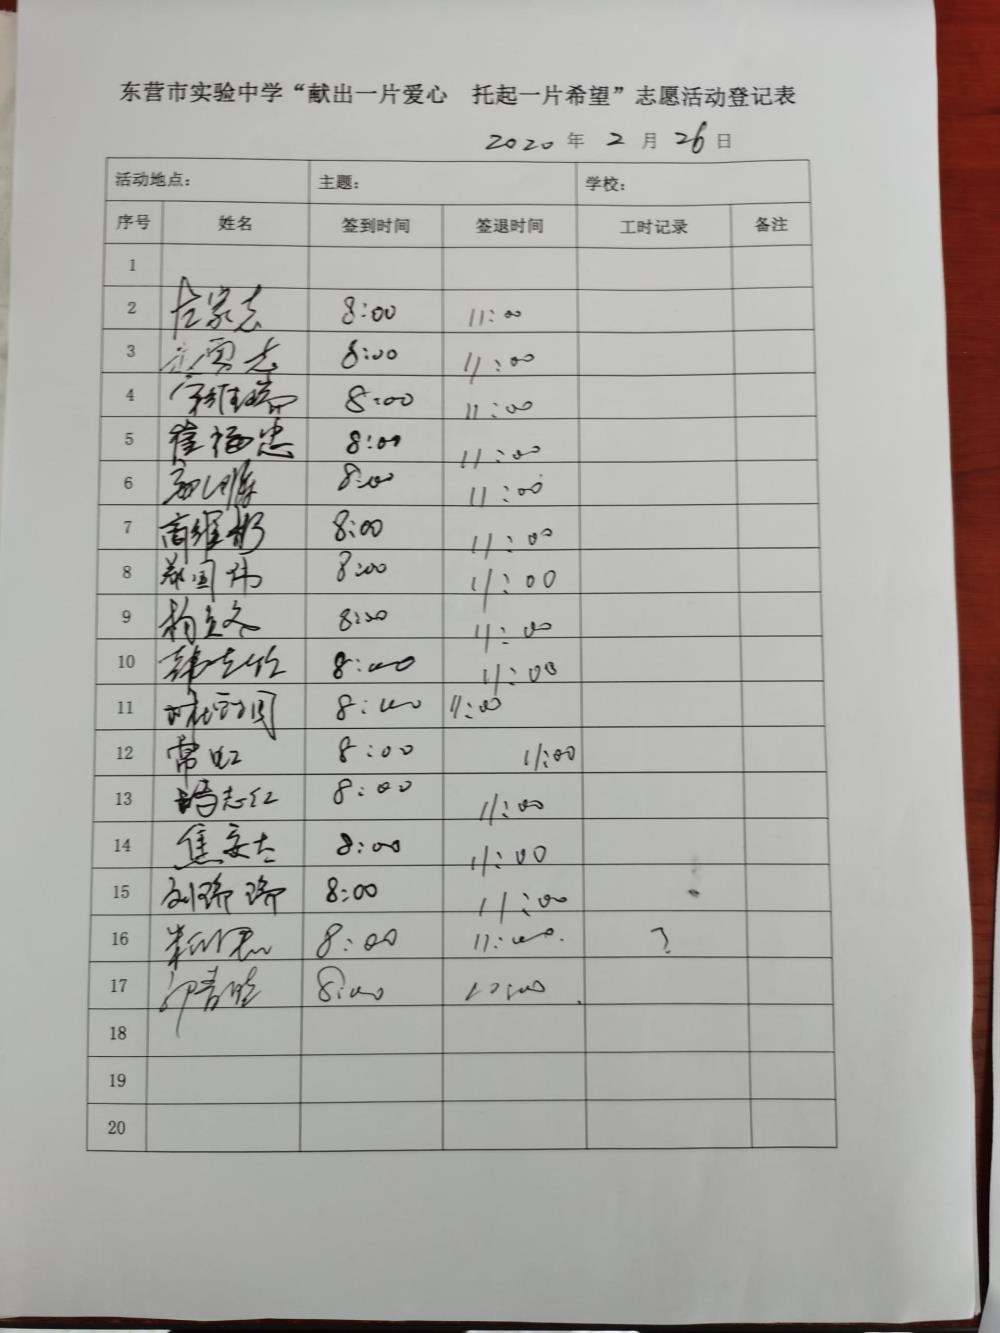 东营市实验中学“献出一片爱心 托起一片希望”志愿活动登记表
2020 年 2 月 26 日
活动地点： 主题： 学校：
序号 姓名 签到时间 签退时间 工时记录 备注
1
2 左家志 8:00 11:00
3 8:00 11:00
4 8:00 11:00
5 崔福忠 8:00 11:00
6 8:00 11:00
7 高维彬 8:00 11:00
8 郑国伟 8:00 11:00
9 杨立冬 8:00 11:00
10 8:00 11:00
11 8:00 11:00
12 常虹 8:00 11:00
13 冯志红 8:00 11:00
14 焦安太 8:00 11:00
15 刘瑞瑞 8:00 11:00
16 8:00 11:00.
17 8:00
18
19
20